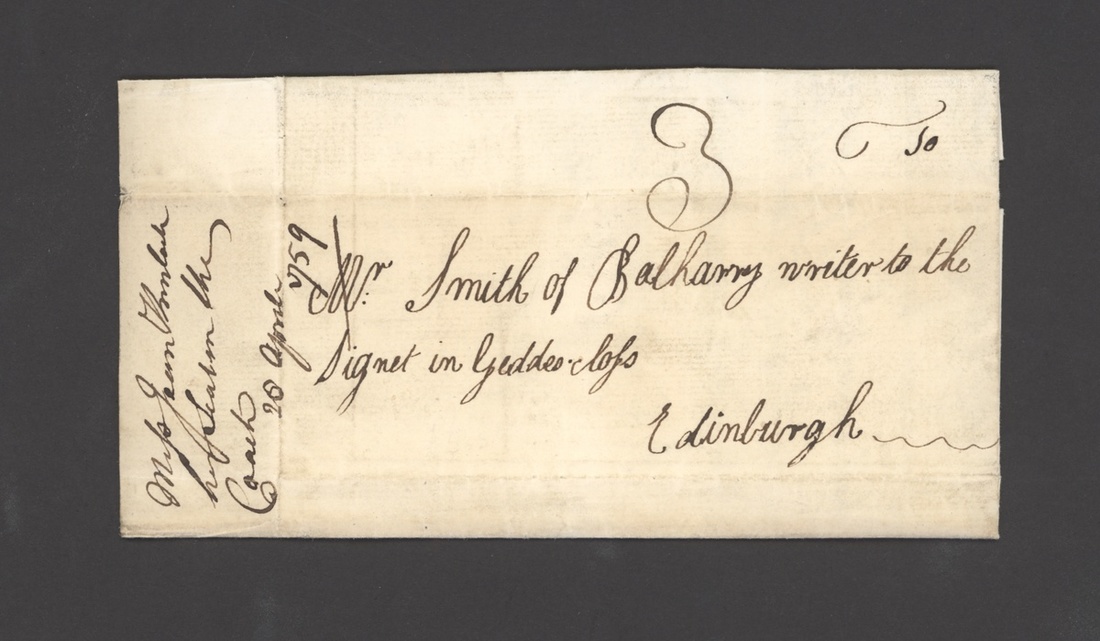 3
To
Mr. Smith of Balharry writer to the
Signet in Geddes-closs
Edinburgh
Miss Jean
her seat in the
Coach
20 Aprile
1759